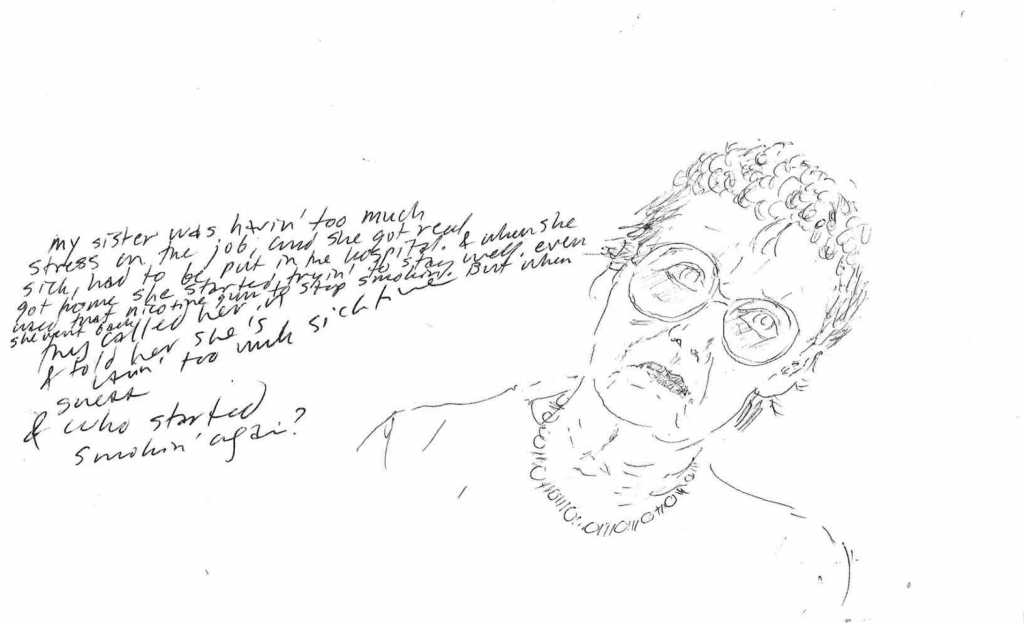 my sister was havin' too much
stress on the job, and she got real
sick, had to be put in the hospital. & when she
got home she started tryin' to stay well. even
used that nicotine gum to stop smokin'. But when
she went back
they called her in
& told her she's
usin' too much sicktime
guess
& who started
smokin' again?